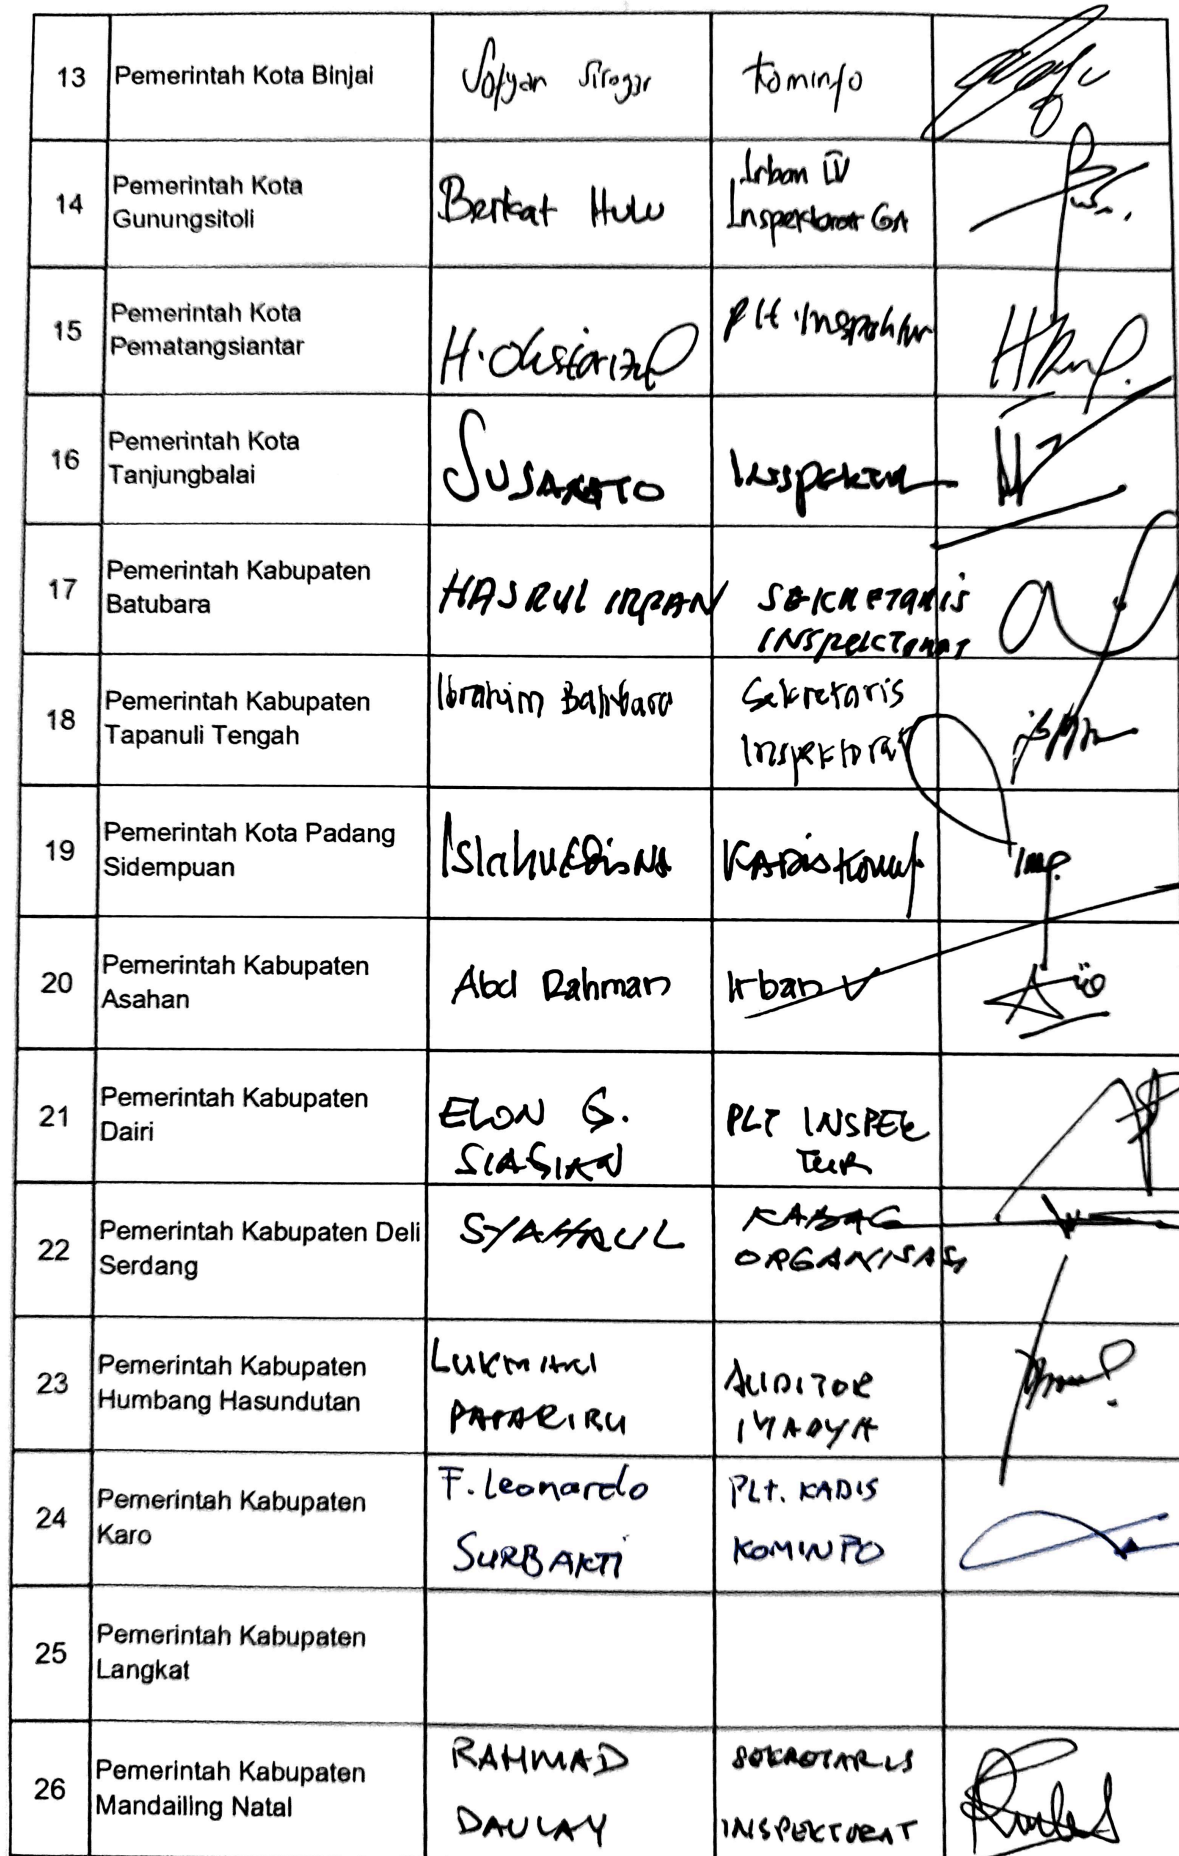 13 Pemerintah Kota Binjai Sofyan Siregar Kominfo
14 Pemerintah Kota
Gunungsitoli Berkat Hulu Irban IV
Inspektorat
15 Pemerintah Kota
Pematangsiantar H. Plt. Inspektur
16 Pemerintah Kota
Tanjungbalai SUSANTO Inspektur
17 Pemerintah Kabupaten
Batubara HASRUL IRFAN SEKRETARIS
INSPEKTORAT
18 Pemerintah Kabupaten
Tapanuli Tengah Ibrahim Sekretaris
Inspektorat
19 Pemerintah Kota Padang
Sidempuan KADIS
20 Pemerintah Kabupaten
Asahan Abd Rahman Irban V
21 Pemerintah Kabupaten
Dairi ELON G.
SIAGIAN
PLT INSPEK
TUR
22 Pemerintah Kabupaten Deli
Serdang SYAHRUL KABAG
ORGANISASI
23 Pemerintah Kabupaten
Humbang Hasundutan LUKMAN
AUDITOR
MADYA
24 Pemerintah Kabupaten
Karo F. Leonardo
SURBAKTI
PLT. KADIS
KOMINFO
25 Pemerintah Kabupaten
Langkat
26 Pemerintah Kabupaten
Mandailing Natal RAHMAD
DAULAY
SEKRETARIS
INSPEKTORAT